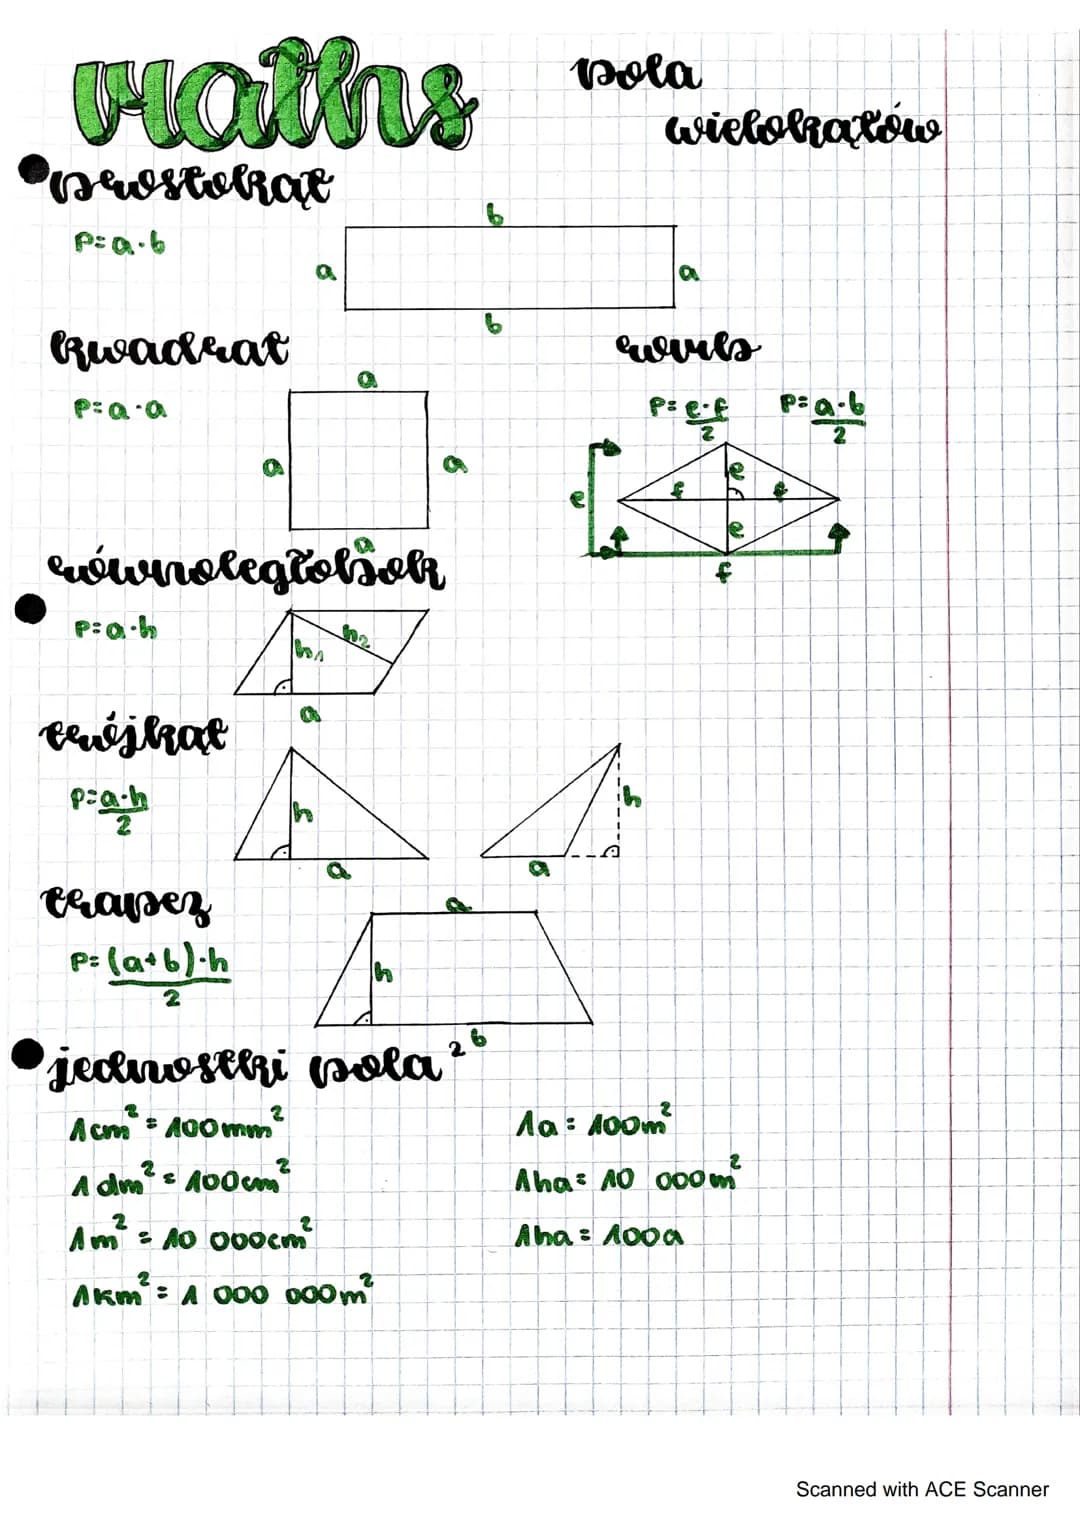 Maths
pola
wielokątów
prostokąt
P=a·b
b
a
a
b
kwadrat
P=a·a
a
a
a
a
romb
P=e·f/2
P=a·b/2
e
f
e
f
e
f
równoległobok
P=a·h
h₁
h₂
a
trójkąt
P=a·h/2
h
a
h
a
trapez
P=(a+b)·h/2
a
h
b
jednostki pola²
1cm²=100mm²
1dm²=100cm²
1m²=10 000cm²
1km²=1 000 000m²
1a=100m²
1ha=10 000m²
1ha=100a
Scanned with ACE Scanner